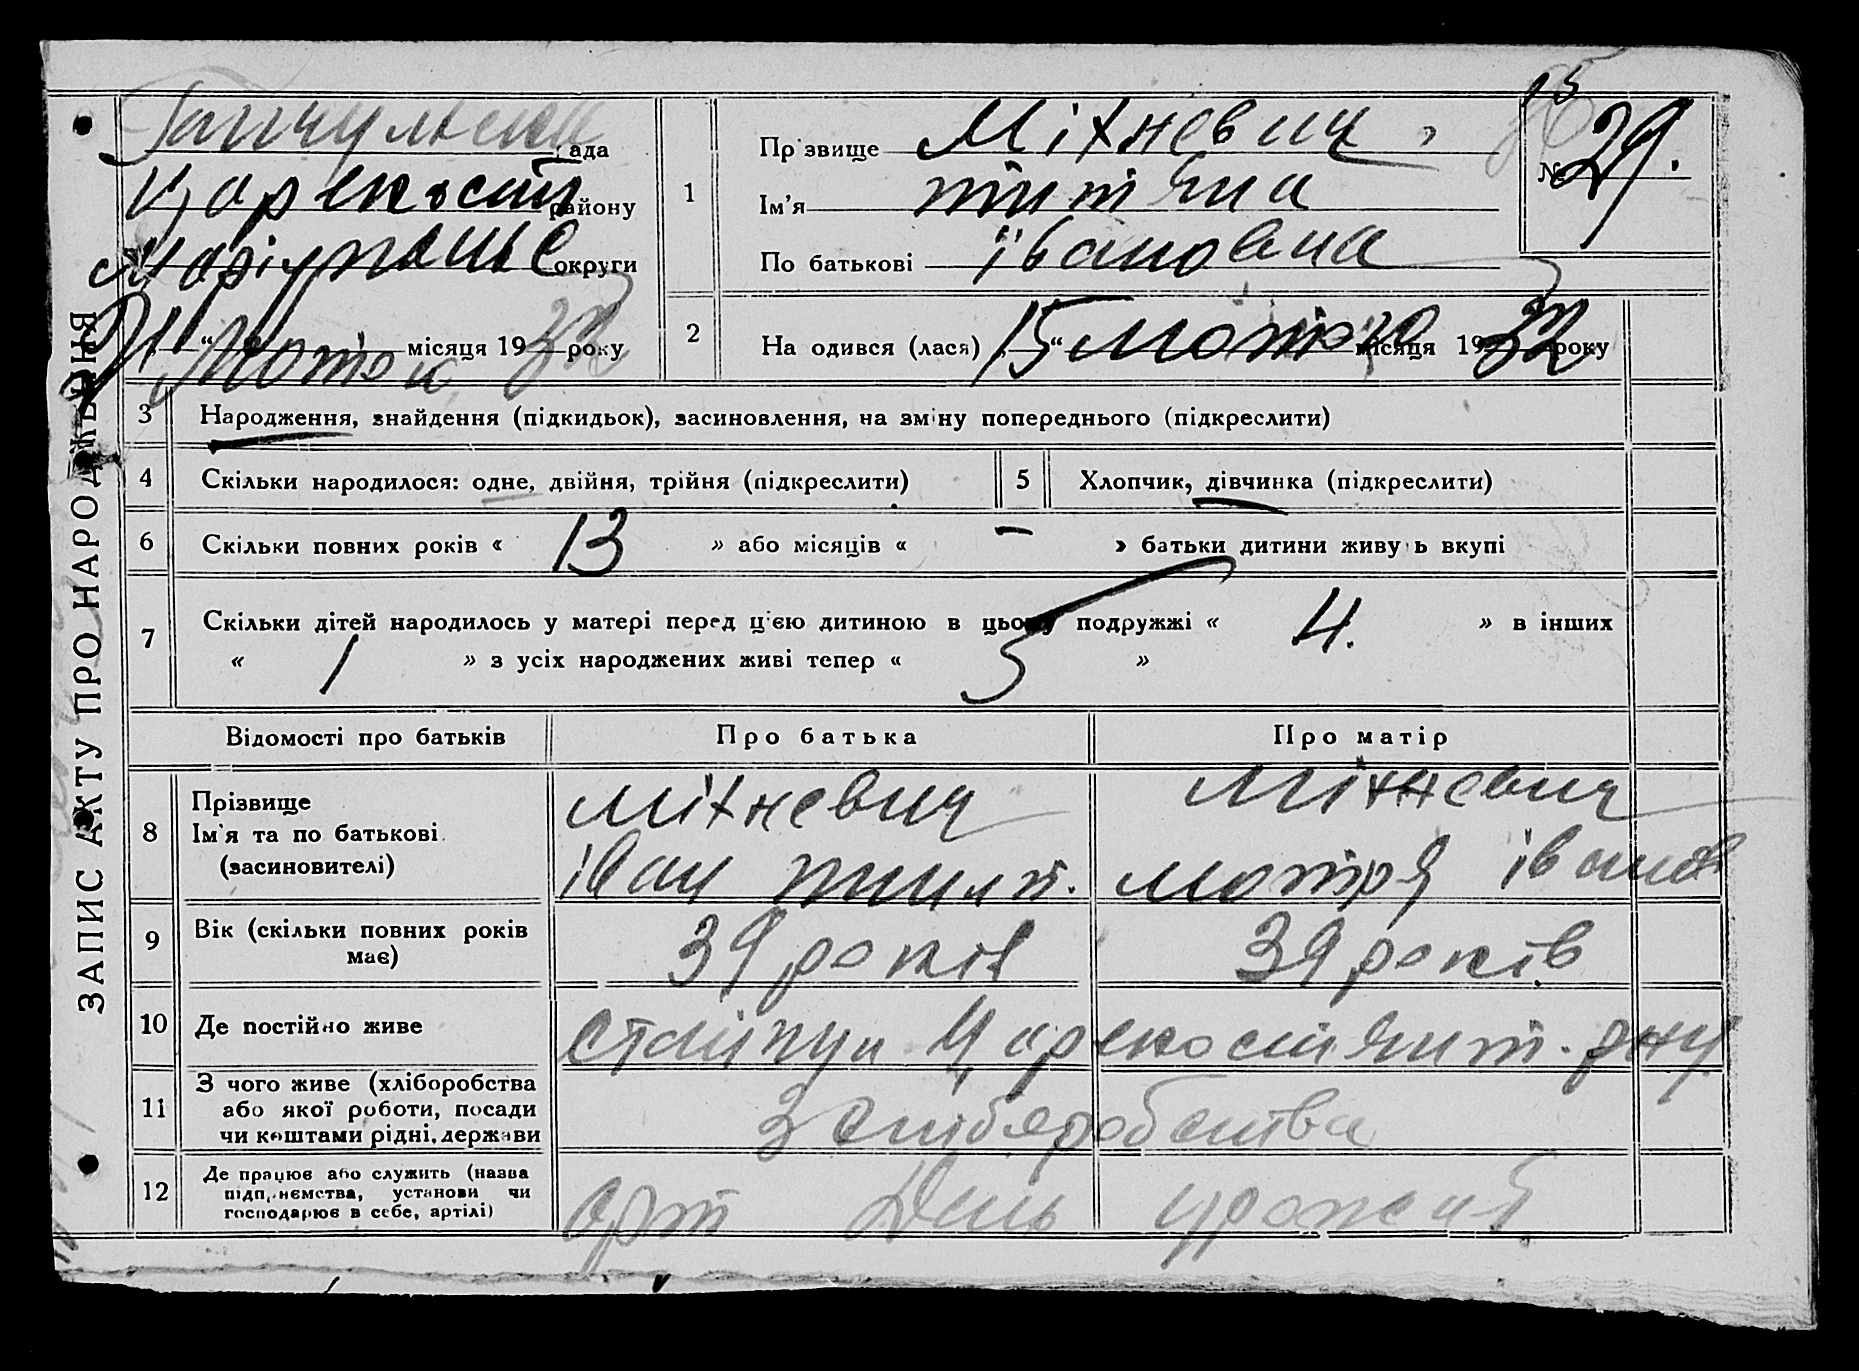 ЗАПИС АКТУ ПРО НАРОДЖЕННЯ
Гайчульська рада
Царекост району
Маріупольс округи
21 “ Лютого місяця 1932 року
1
Прізвище Міхневич
Ім'я Титяна
По батькові Івановна
№ 29.
2
На одився (лася) 15 “ Лютого місяця 1932 року
3 Народження, знайдення (підкидьок), засиновлення, на зміну попереднього (підкреслити)
4 Скільки народилося: одне, двійня, трійня (підкреслити)
5 Хлопчик, дівчинка (підкреслити)
6 Скільки повних років « 13 » або місяців « – » батьки дитини живуть вкупі
7 Скільки дітей народилось у матері перед цією дитиною в цьому подружжі « 4. » в інших
« 1 » з усіх народжених живі тепер « 5 »
Відомості про батьків Про батька Про матір
8 Прізвище
Ім'я та по батькові
(засиновителі)
Міхневич
Іван
Міхневич
Мотря Іванов
9 Вік (скільки повних років
має)
39 років
39 років
10 Де постійно живе
11 З чого живе (хліборобства
або якої роботи, посади
чи коштами рідні, держави
З хліборобства
12 Де працює або служить (назва
підприємства, установи чи
господарює в себе, артілі)
Арт День урожаю